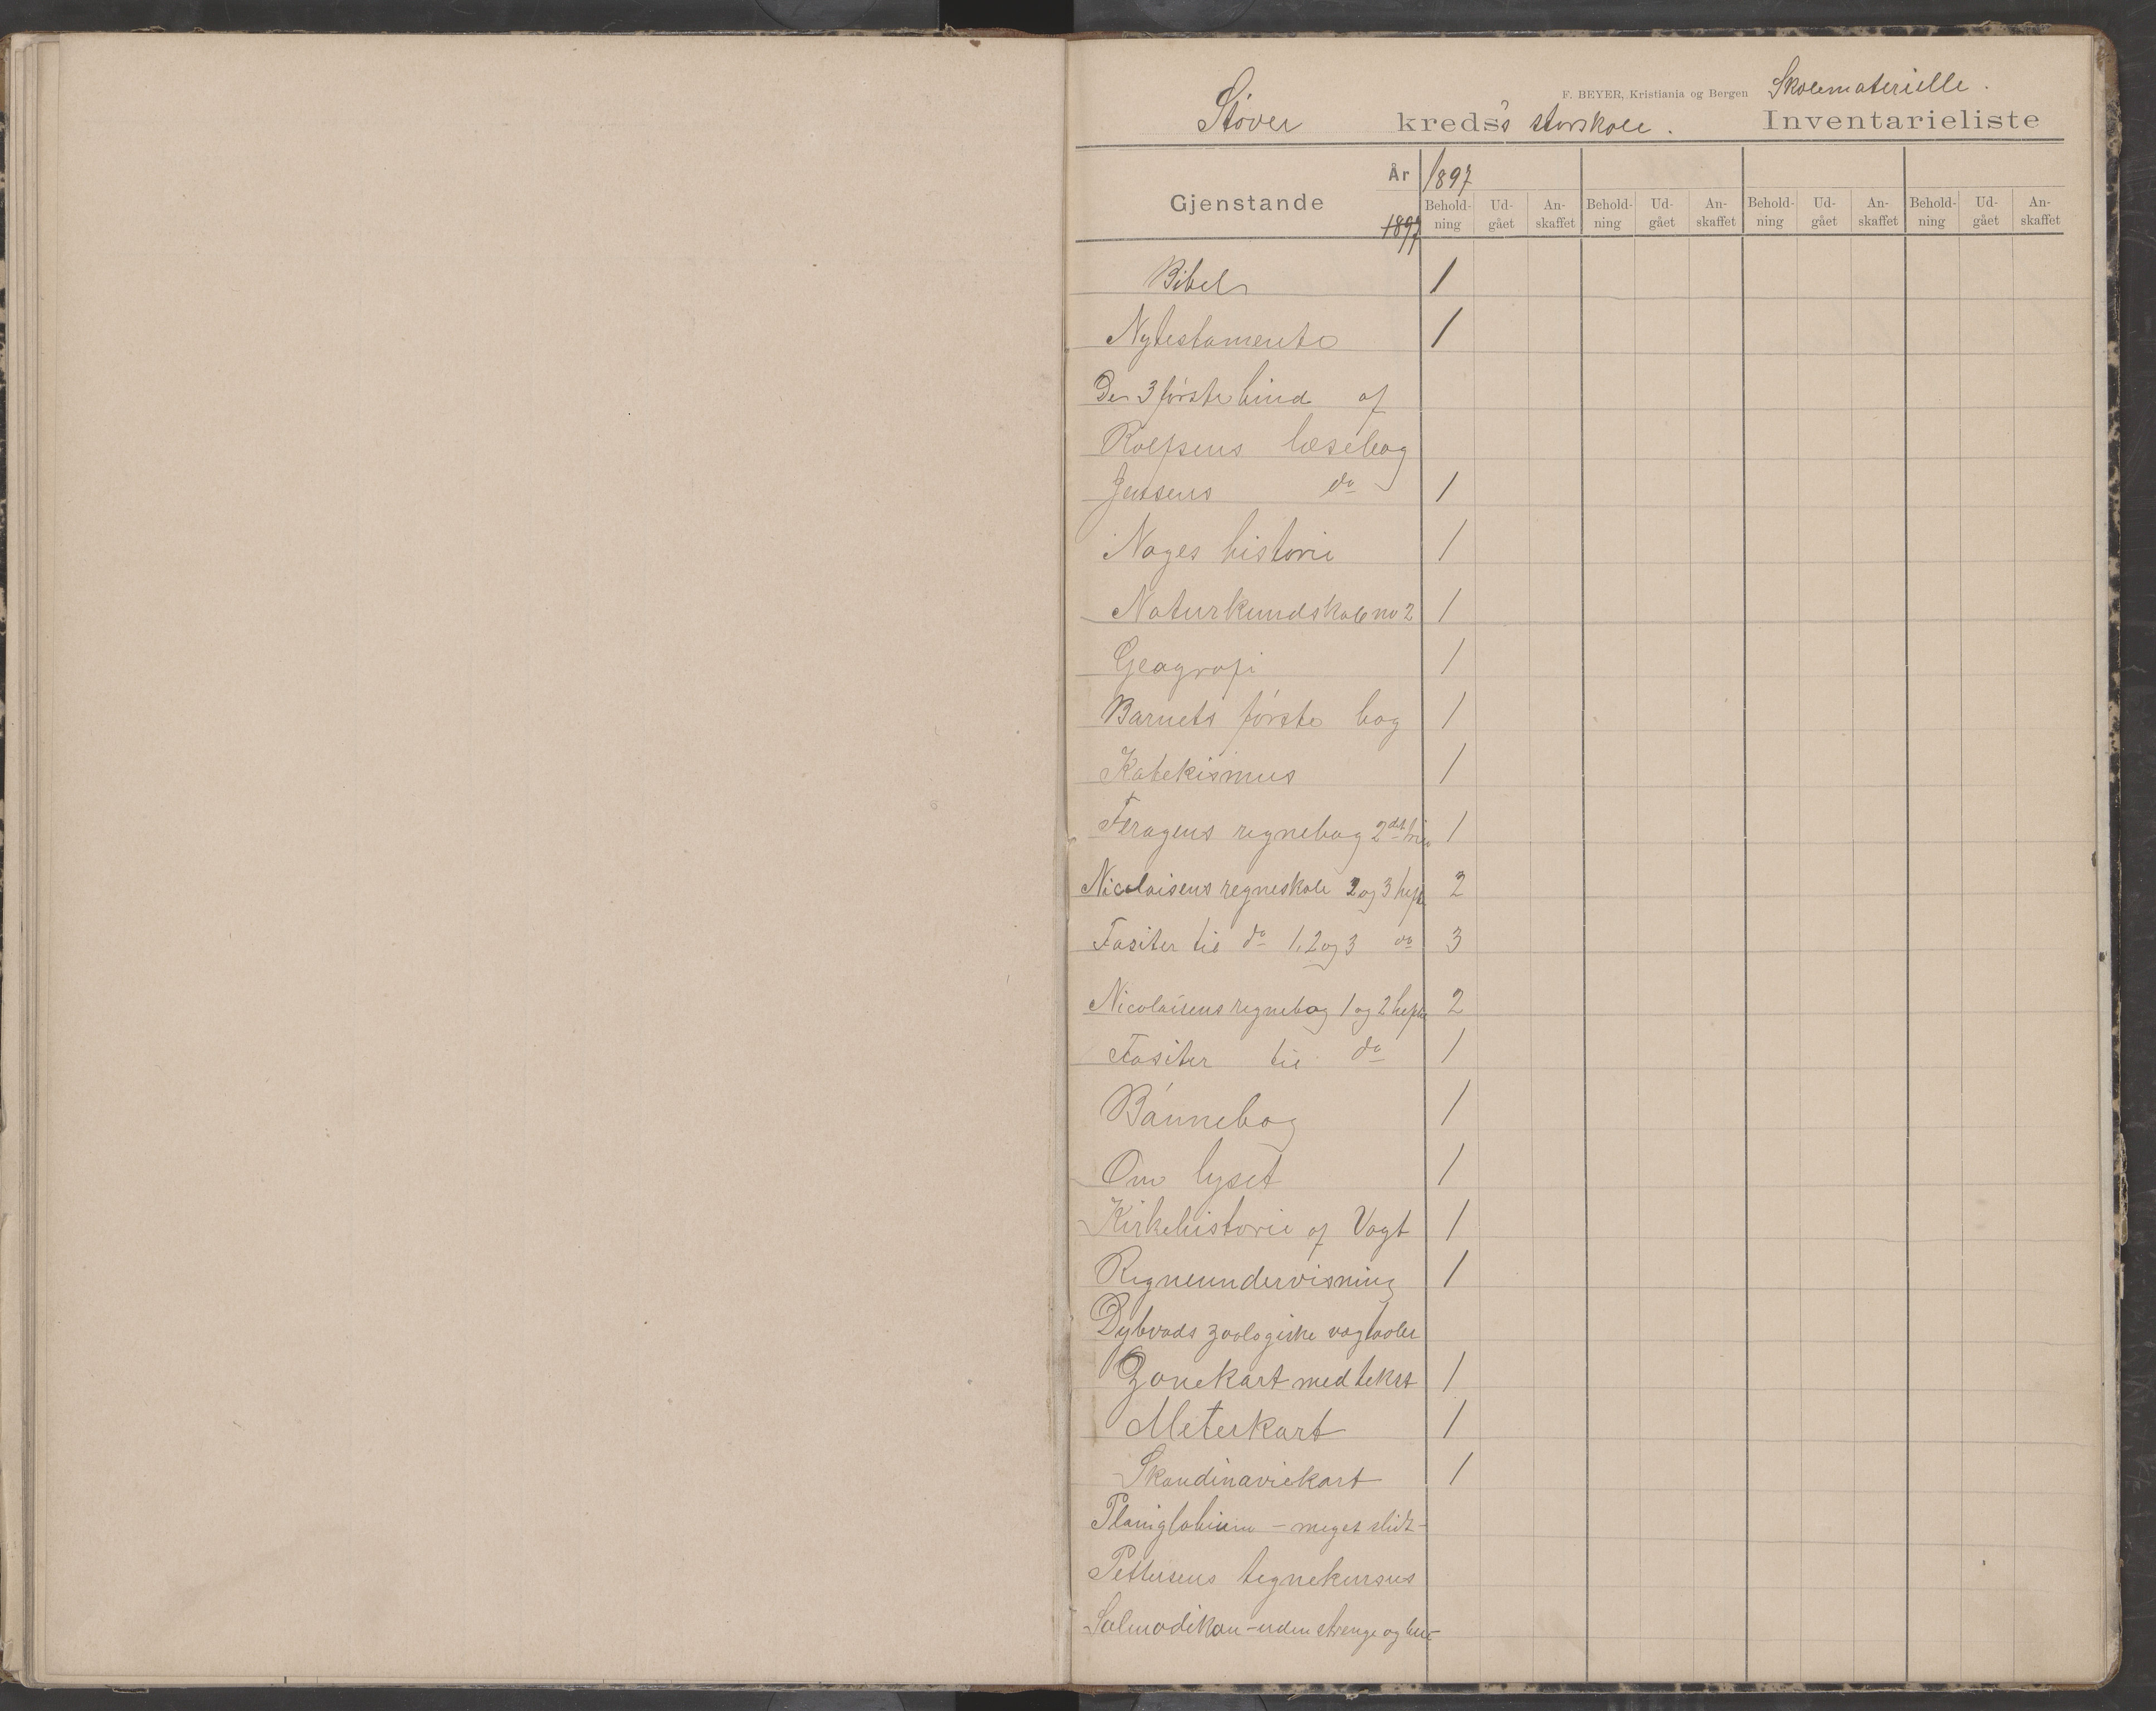 F. BEYER, Kristiania og Bergen Skolematerielle.
Støver kreds's storskole. Inventarieliste
År 1897
Gjenstande 1897
Behold-ning Ud-gået An-skaffet Behold-ning Ud-gået An-skaffet Behold-ning Ud-gået An-skaffet Behold-ning Ud-gået An-skaffet
Bibel 1
Nytestamente 1
De 3 første bind af
Rolfsens læsebog
Jensens do 1
Nages historie 1
Naturkundskab no 2 1
Geografi 1
Barnets første bog 1
Katekismus 1
Feragens regnebog 2det 1
Nicolaisens regneskole 2 og 3 hefte 2
Fasiter til do 1, 2 og 3 do 3
Nicolaisens regnebog 1 og 2 hefte 2
Fasiter til do 1
Bønnebog 1
Om lyset 1
Kirkehistorie af Vogt 1
Regneundervisning 1
Dybvads zoologiske vægtavler
Zonekart med tekst 1
Meterkart 1
Skandinaviekart 1
Planiglobium - meget slidt -
Pettersens tegnekursus
Salmodikon - uden strenge og bue -